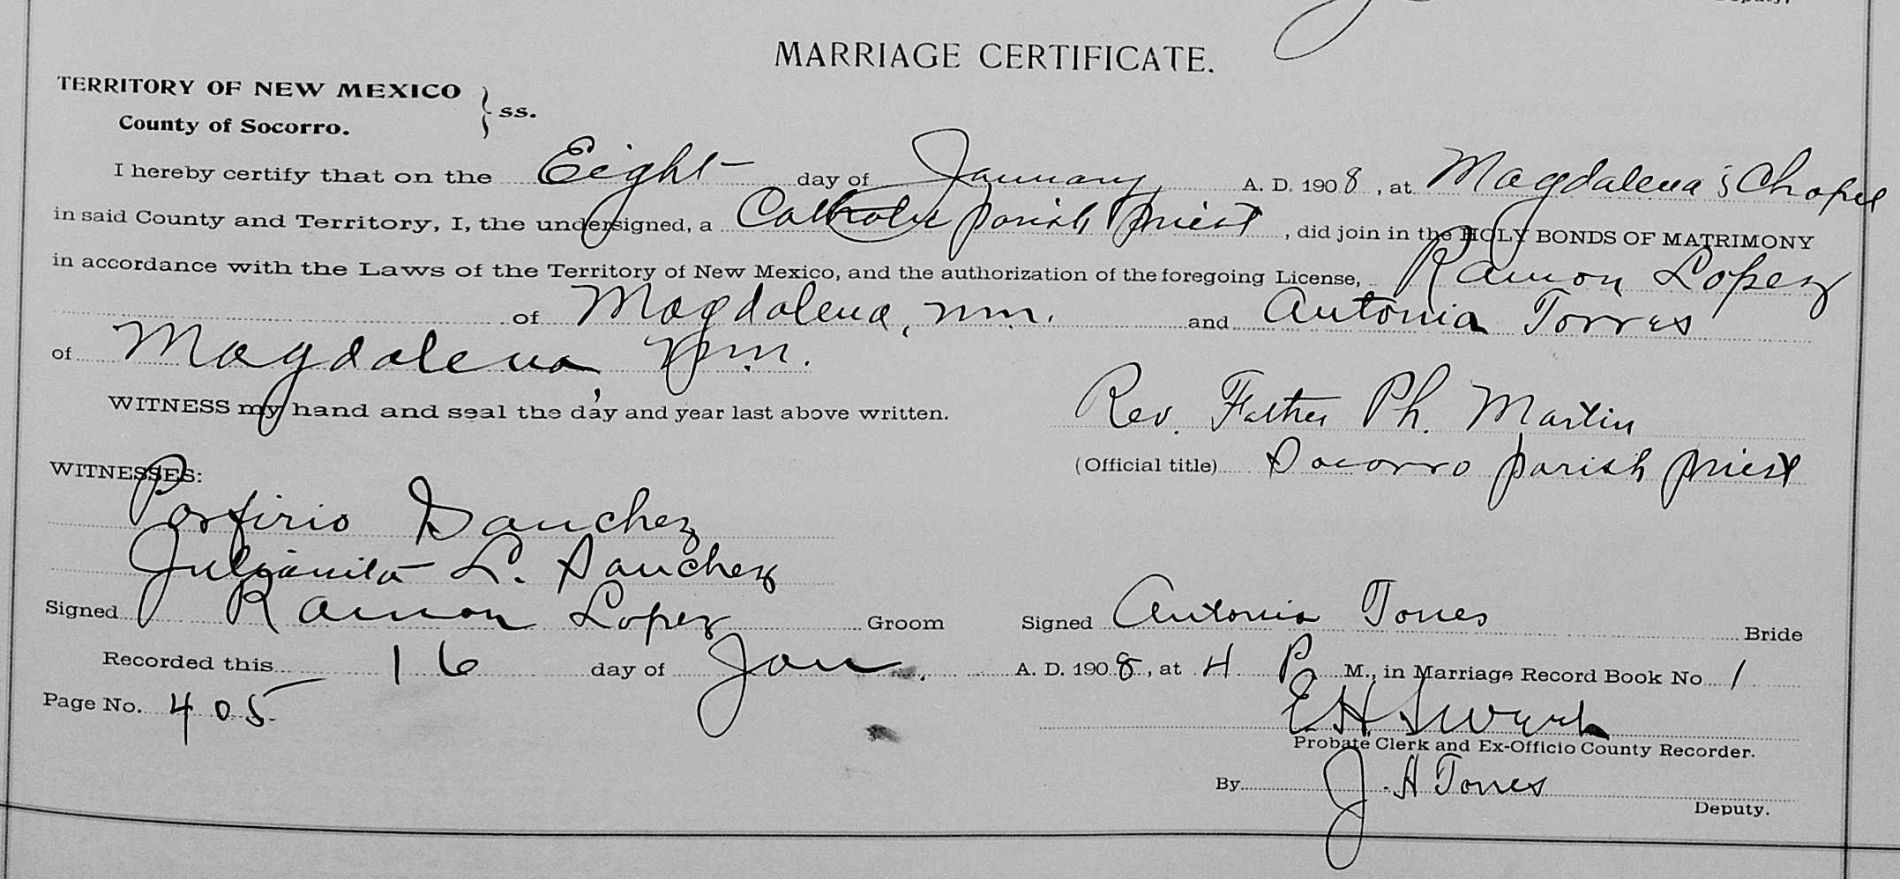 Deputy.
MARRIAGE CERTIFICATE.
TERRITORY OF NEW MEXICO
County of Socorro.
} ss.
I hereby certify that on the Eight day of January A. D. 1908, at Magdalena's Chapel
in said County and Territory, I, the undersigned, a Catholic parish priest, did join in the HOLY BONDS OF MATRIMONY
in accordance with the Laws of the Territory of New Mexico, and the authorization of the foregoing License, Ramon Lopez
of Magdalena, N.M. and Antonia Torres
of Magdalena, N.M.
WITNESS my hand and seal the day and year last above written.
Rev. Father Ph. Martin
(Official title) Socorro parish priest
WITNESSES:
Porfirio Sanchez
Julianita L. Sanchez
Signed Ramon Lopez Groom Signed Antonia Torres Bride
Recorded this 16 day of Jan. A. D. 1908, at 4 P. M., in Marriage Record Book No. 1
Page No. 405
E H Sweet
Probate Clerk and Ex-Officio County Recorder.
By J. A Torres
Deputy.